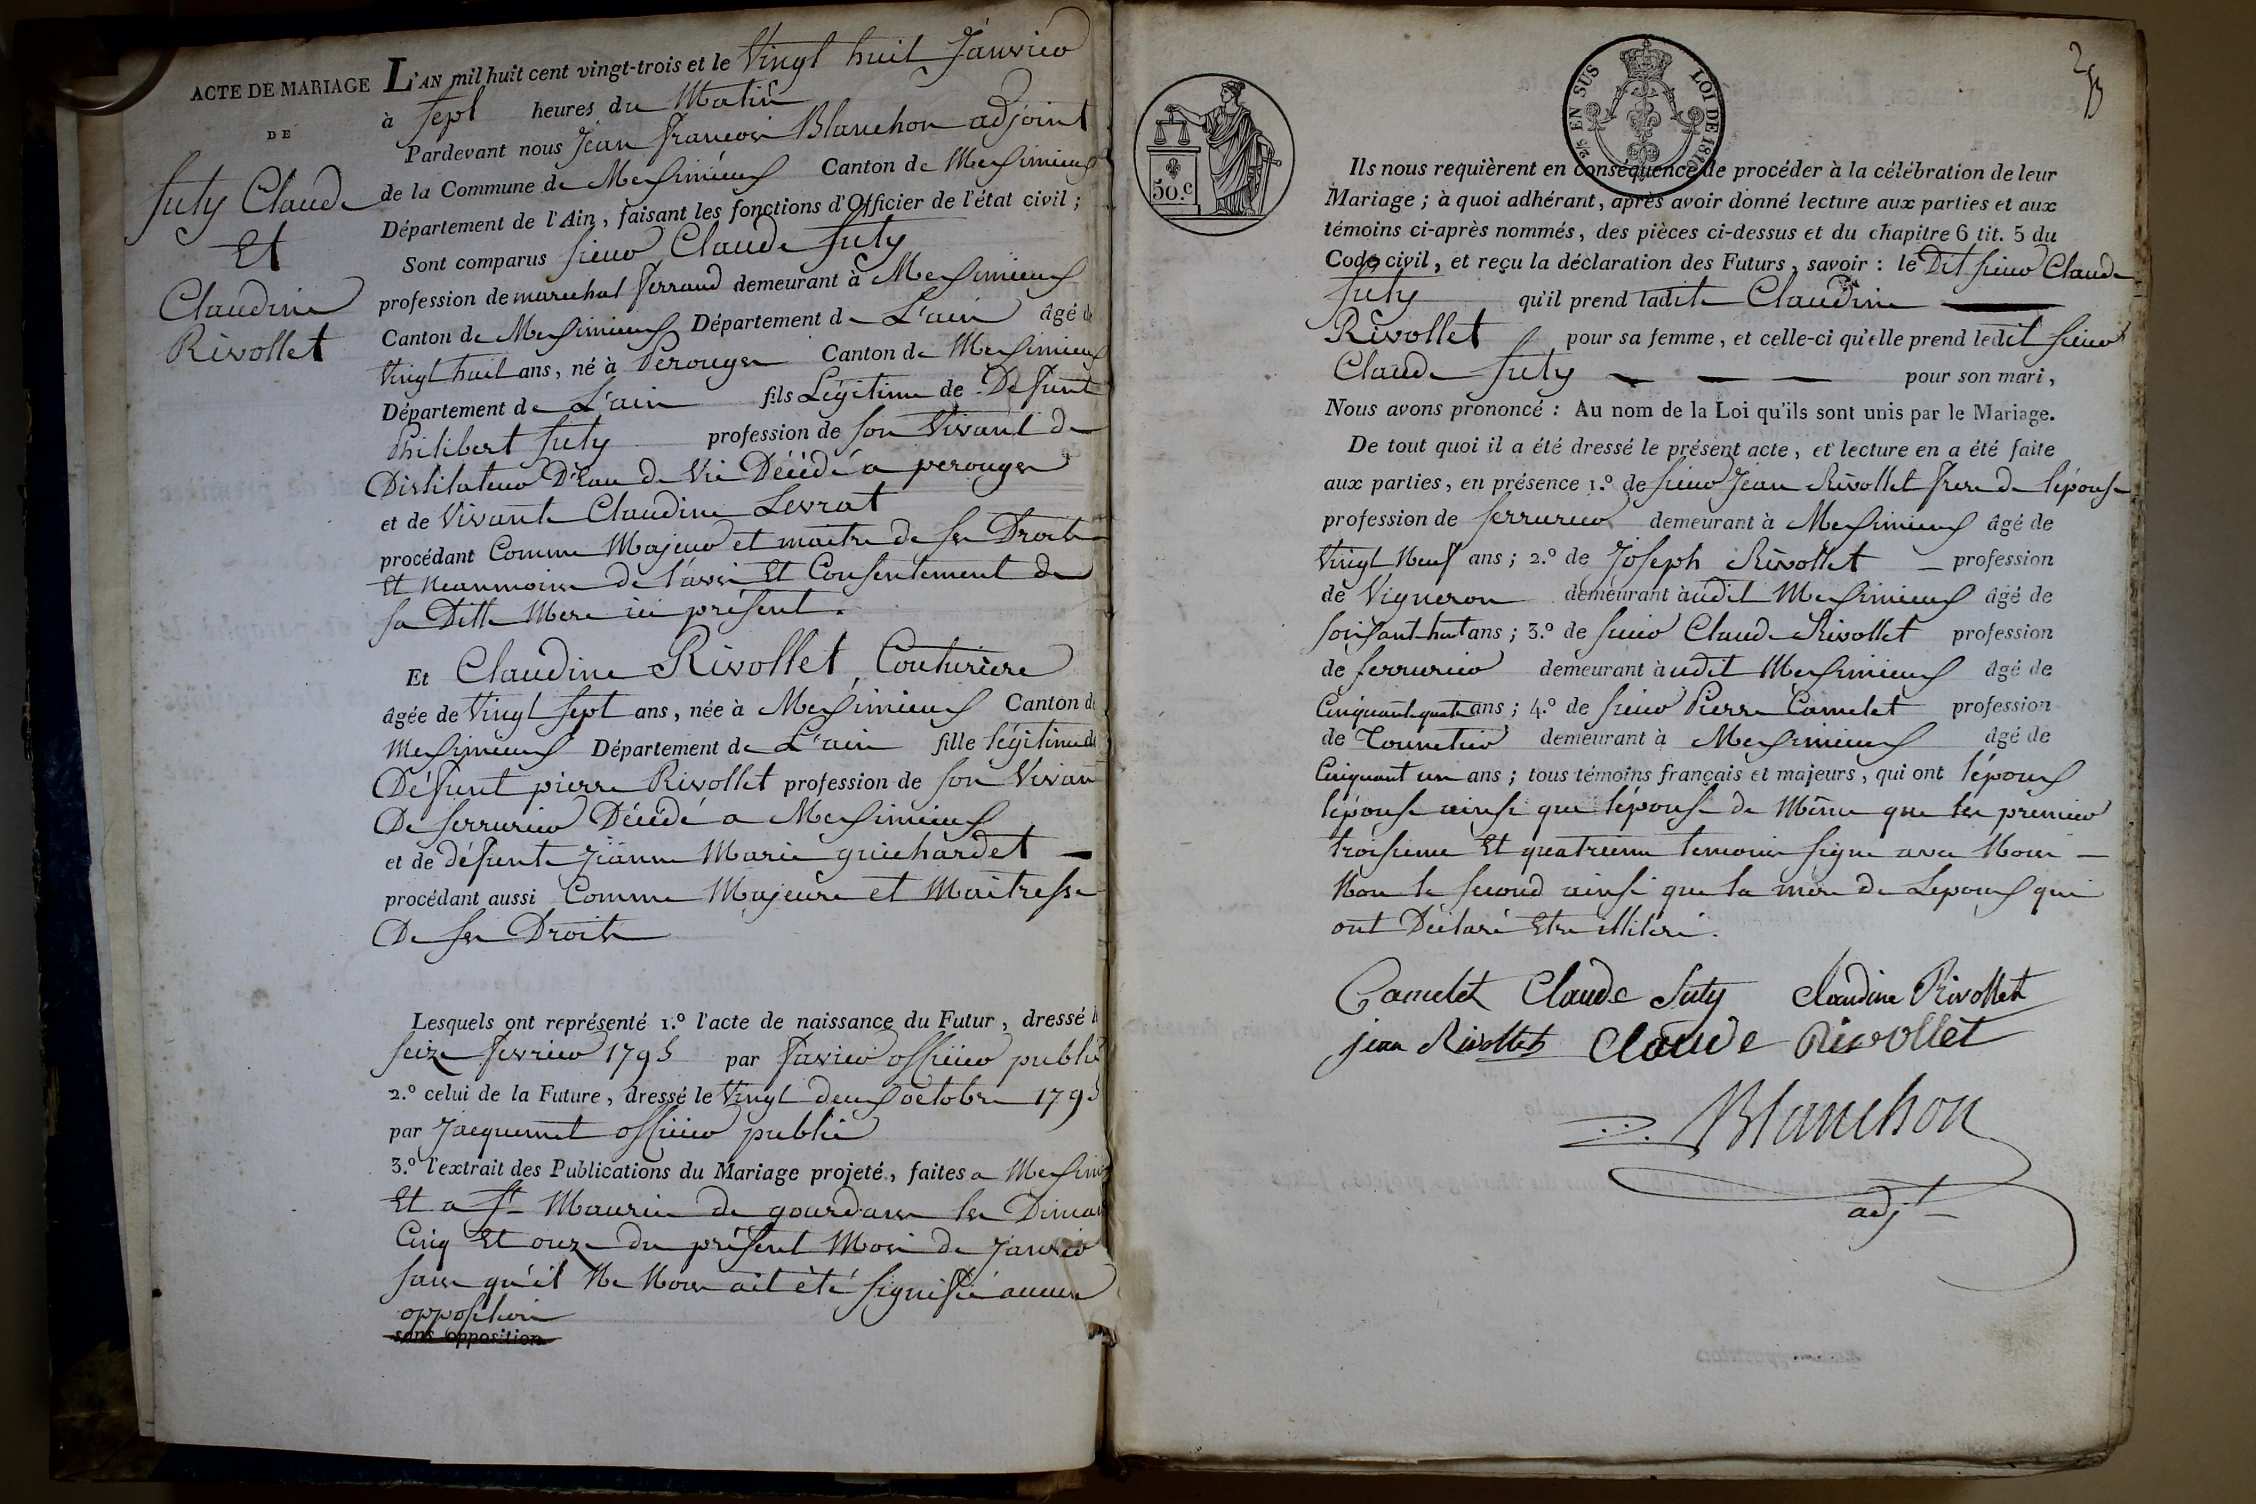 ACTE DE MARIAGE
DE
Juty Claude
Et
Claudine
Rivollet
L'AN mil huit cent vingt-trois et le Vingt huit Janvier
à Sept heures du Matin
Pardevant nous Jean françois Blanchon adjoint
de la Commune de Meximieux Canton de Meximieux
Département de l'Ain, faisant les fonctions d'Officier de l'état civil;
Sont comparus sieur Claude Juty
profession de marechal ferrand demeurant à Meximieux
Canton de Meximieux Département de L'ain âgé de
Vingt huit ans, né à Perouges Canton de Meximieux
Département de L'ain fils Légitime de Defunt
Philibert Juty profession de son Vivant de
Distilateur D'Eau de Vie Décédé a perouges
et de Vivante Claudine Levrat
procédant Comme Majeur et maitre de ses Droits
Et neanmoins de l'avis Et Consentement de
sa Ditte Mere ici présent.
Et Claudine Rivollet, Couturière
âgée de Vingt Sept ans, née à Meximieux Canton de
Meximieux Département de L'ain fille légitime de
Défunt pierre Rivollet profession de son Vivant
De serrurier Décédé a Meximieux
et de défunte Jeanne Marie guichardet
procédant aussi Comme Majeure et Maitresse
De ses Droits
Lesquels ont représenté 1.º l'acte de naissance du Futur, dressé le
seize fevrier 1795 par favier officier public
2.º celui de la Future, dressé le Vingt deux octobre 1795
par Jacquemet officier public
3.º l'extrait des Publications du Mariage projeté, faites a Mexim
Et a St Maurice de gourdans les Diman
Cinq Et onze du présent Mois de Janvier
sans qu'il Ne Nous ait été signifié aucune
opposition
sans opposition
50.c
2/5 EN SUS LOI DE 1816
Ils nous requièrent en conséquence de procéder à la célébration de leur
Mariage; à quoi adhérant, après avoir donné lecture aux parties et aux
témoins ci-après nommés, des pièces ci-dessus et du chapitre 6 tit. 5 du
Code civil, et reçu la déclaration des Futurs, savoir: le Dit sieur Claude
Juty qu'il prend ladite Claudine
Rivollet pour sa femme, et celle-ci qu'elle prend ledit sieur
Claude Juty pour son mari,
Nous avons prononcé: Au nom de la Loi qu'ils sont unis par le Mariage.
De tout quoi il a été dressé le présent acte, et lecture en a été faite
aux parties, en présence 1.º de sieur Jean Rivollet frere de l'épouse
profession de serrurier demeurant à Meximieux âgé de
Vingt Neuf ans; 2.º de Joseph Rivollet profession
de Vigneron demeurant àudit Meximieux âgé de
soixante huit ans; 3.º de sieur Claude Rivollet profession
de serrurier demeurant àudit Meximieux âgé de
Cinquante quatre ans; 4.º de sieur Pierre Camelet profession
de Tonnelier demeurant à Meximieux âgé de
Cinquante un ans; tous témoins français et majeurs, qui ont l'époux
l'épouse ainsi que l'épouse de Même que les premier
troisieme Et quatrieme temoins signe avec Nous
Non le second ainsi que la mere de Lepoux qui
ont Déclaré Etre illiteré.
Camelet Claude Juty Claudine Rivollet
jean Rivollet Claude Rivollet
Blanchon
adjt